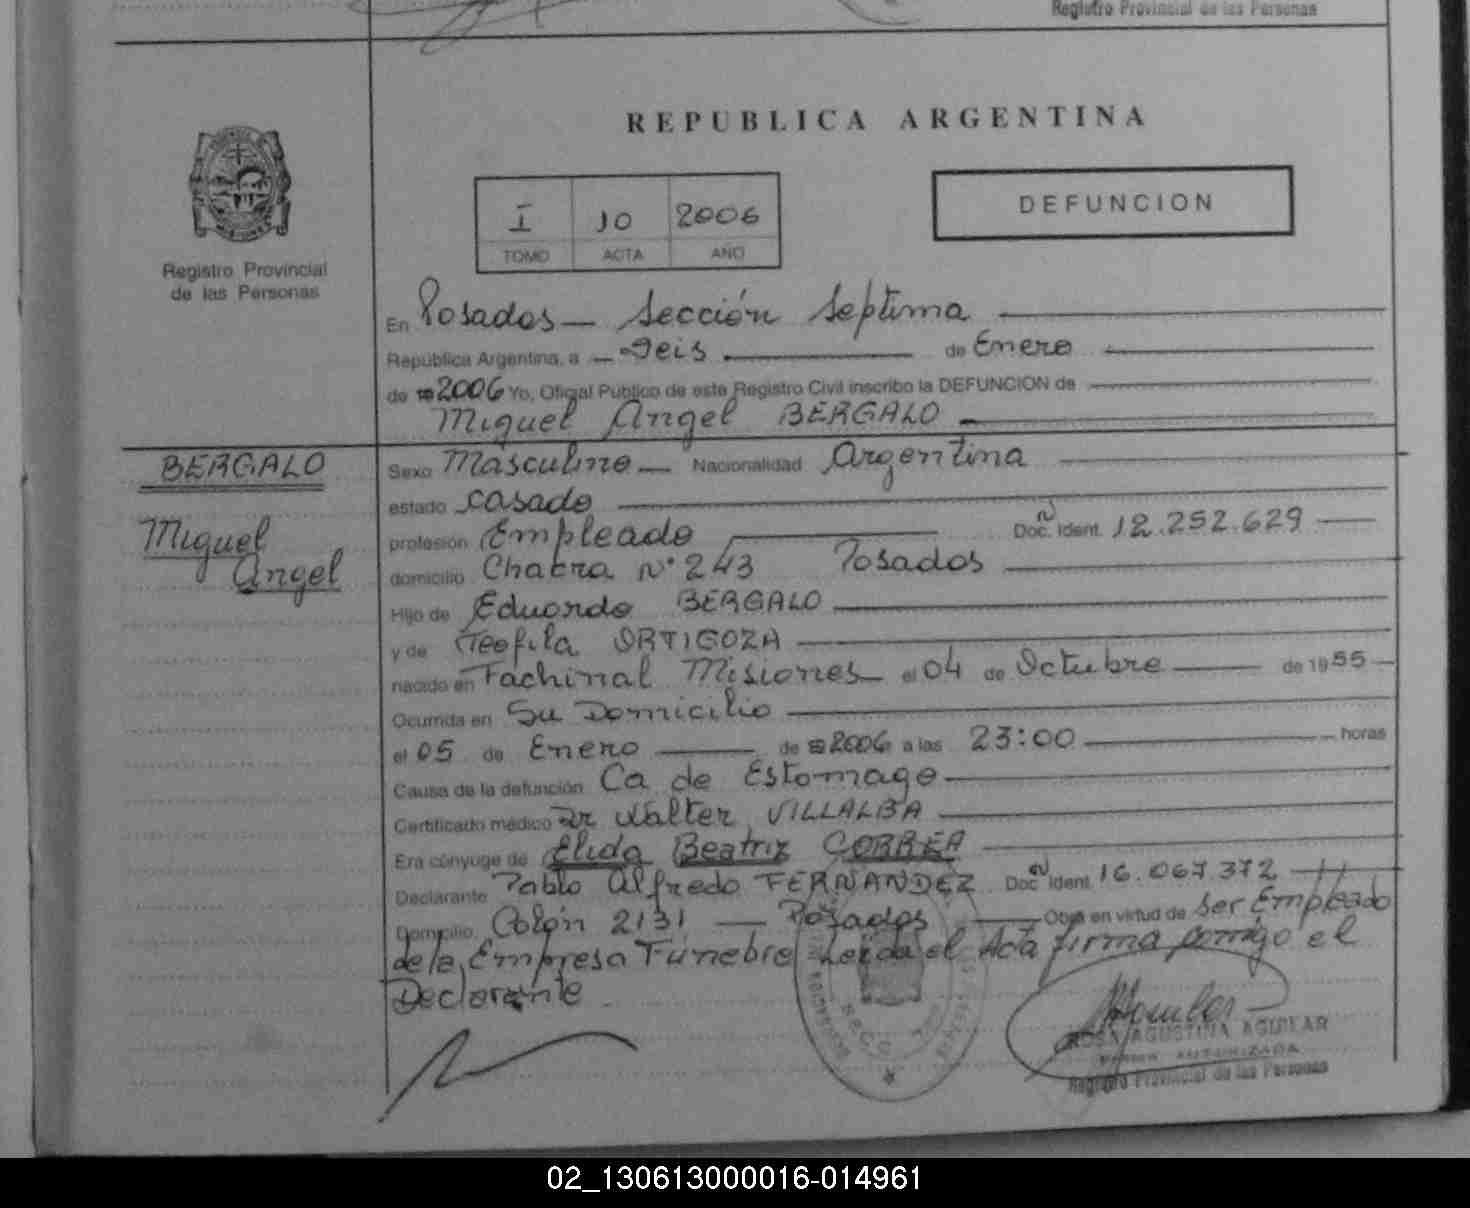 Registro Provincial de las Personas
REPUBLICA ARGENTINA
I 10 2006
TOMO ACTA AÑO
DEFUNCION
Registro Provincial
de las Personas
En Posadas — Sección Septima
República Argentina, a — Seis de Enero
de 2006 Yo, Oficial Público de este Registro Civil inscribo la DEFUNCION de
Miguel Angel BERGALO
BERGALO
Miguel
Angel
Sexo Masculino — Nacionalidad Argentina
estado casado
profesión Empleado Doc. Ident. 12.252.629
domicilio Chacra N° 243 Posadas
Hijo de Eduardo BERGALO
y de Teofila ORTIGOZA
nacido en Fachinal Misiones el 04 de Octubre de 1955
Ocurrida en Su Domicilio
el 05 de Enero de 2006 a las 23:00 horas
Causa de la defunción Ca de Estomago
Certificado médico Dr Walter VILLALBA
Era cónyuge de Elida Beatriz CORREA
Declarante Pablo Alfredo FERNANDEZ Doc. Ident. 16.067.372
Domicilio Colón 2131 — Posadas Obra en virtud de ser Empleado
de la Empresa Funebre Leida el Acta firma conmigo el
Declarante
ROSA AGUSTINA AGUILAR
FIRMA AUTORIZADA
Registro Provincial de las Personas
02_130613000016-014961